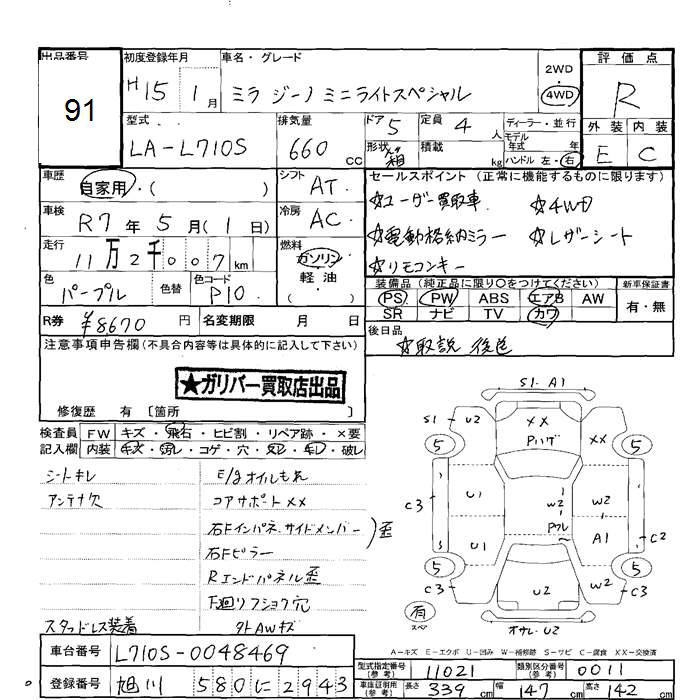 出品番号
91
初度登録年月
H 15 1月
車名・グレード
ミラ ジーノ ミニライトスペシャル
2WD
4WD
評価点
R
型式
LA-L710S
排気量
660 CC
ドア 5
定員 4 人
形状 箱
積載 kg
ディーラー・並行
モデル年式 年
ハンドル 左・右
外装 内装
E C
車歴
自家用・( )
シフト
AT.
車検
R7年5月(1日)
冷房
AC.
走行
11万2千007km
燃料
ガソリン
軽油
( )
色
パープル
色替
色コード
P10
R券 ¥8670円
名変期限 月 日
セールスポイント (正常に機能するものに限ります)
☆ユーザー買取車 ☆4WD
☆電動格納ミラー ☆レザーシート
☆リモコンキー
装備品 (純正品に限り○をつけてください)
PS PW ABS エアB AW
SR ナビ TV カワ
新車保証書
有・無
後日品
☆取説 後送
注意事項申告欄(不具合内容等は具体的に記入して下さい)
★ガリバー買取店出品
修復歴 有 〔箇所 〕
検査員記入欄
FW キズ・飛石・ヒビ割・リペア跡・×要
内装 キズ・汚レ・コゲ・穴・スレ・キレ・破レ
シートキレ
アンテナ欠
E/gオイルもれ
コアサポートXX
右Fインパネ、サイドメンバー
右Fピラー
歪
Rエンドパネル歪
下廻りフショク穴
スタッドレス装着
タトAWキズ
S1. A1
S1 U2
XX
Pハゲ
XX
5 5
C3 U1 W2 W2
Pフレ
C3 U1 A1 C2
5 5
U2 W2
有
スペア
オサレ・U2
A-キズ E-エクボ U-凹み W-補修跡 S-サビ C-腐食 XX-交換済
車台番号 L710S-0048469
登録番号 旭川 580 に 2943
型式指定番号(参考) 11021
類別区分番号(参考) 0011
車庫証明用(参考) 長さ 339cm 幅 147cm 高さ 142cm